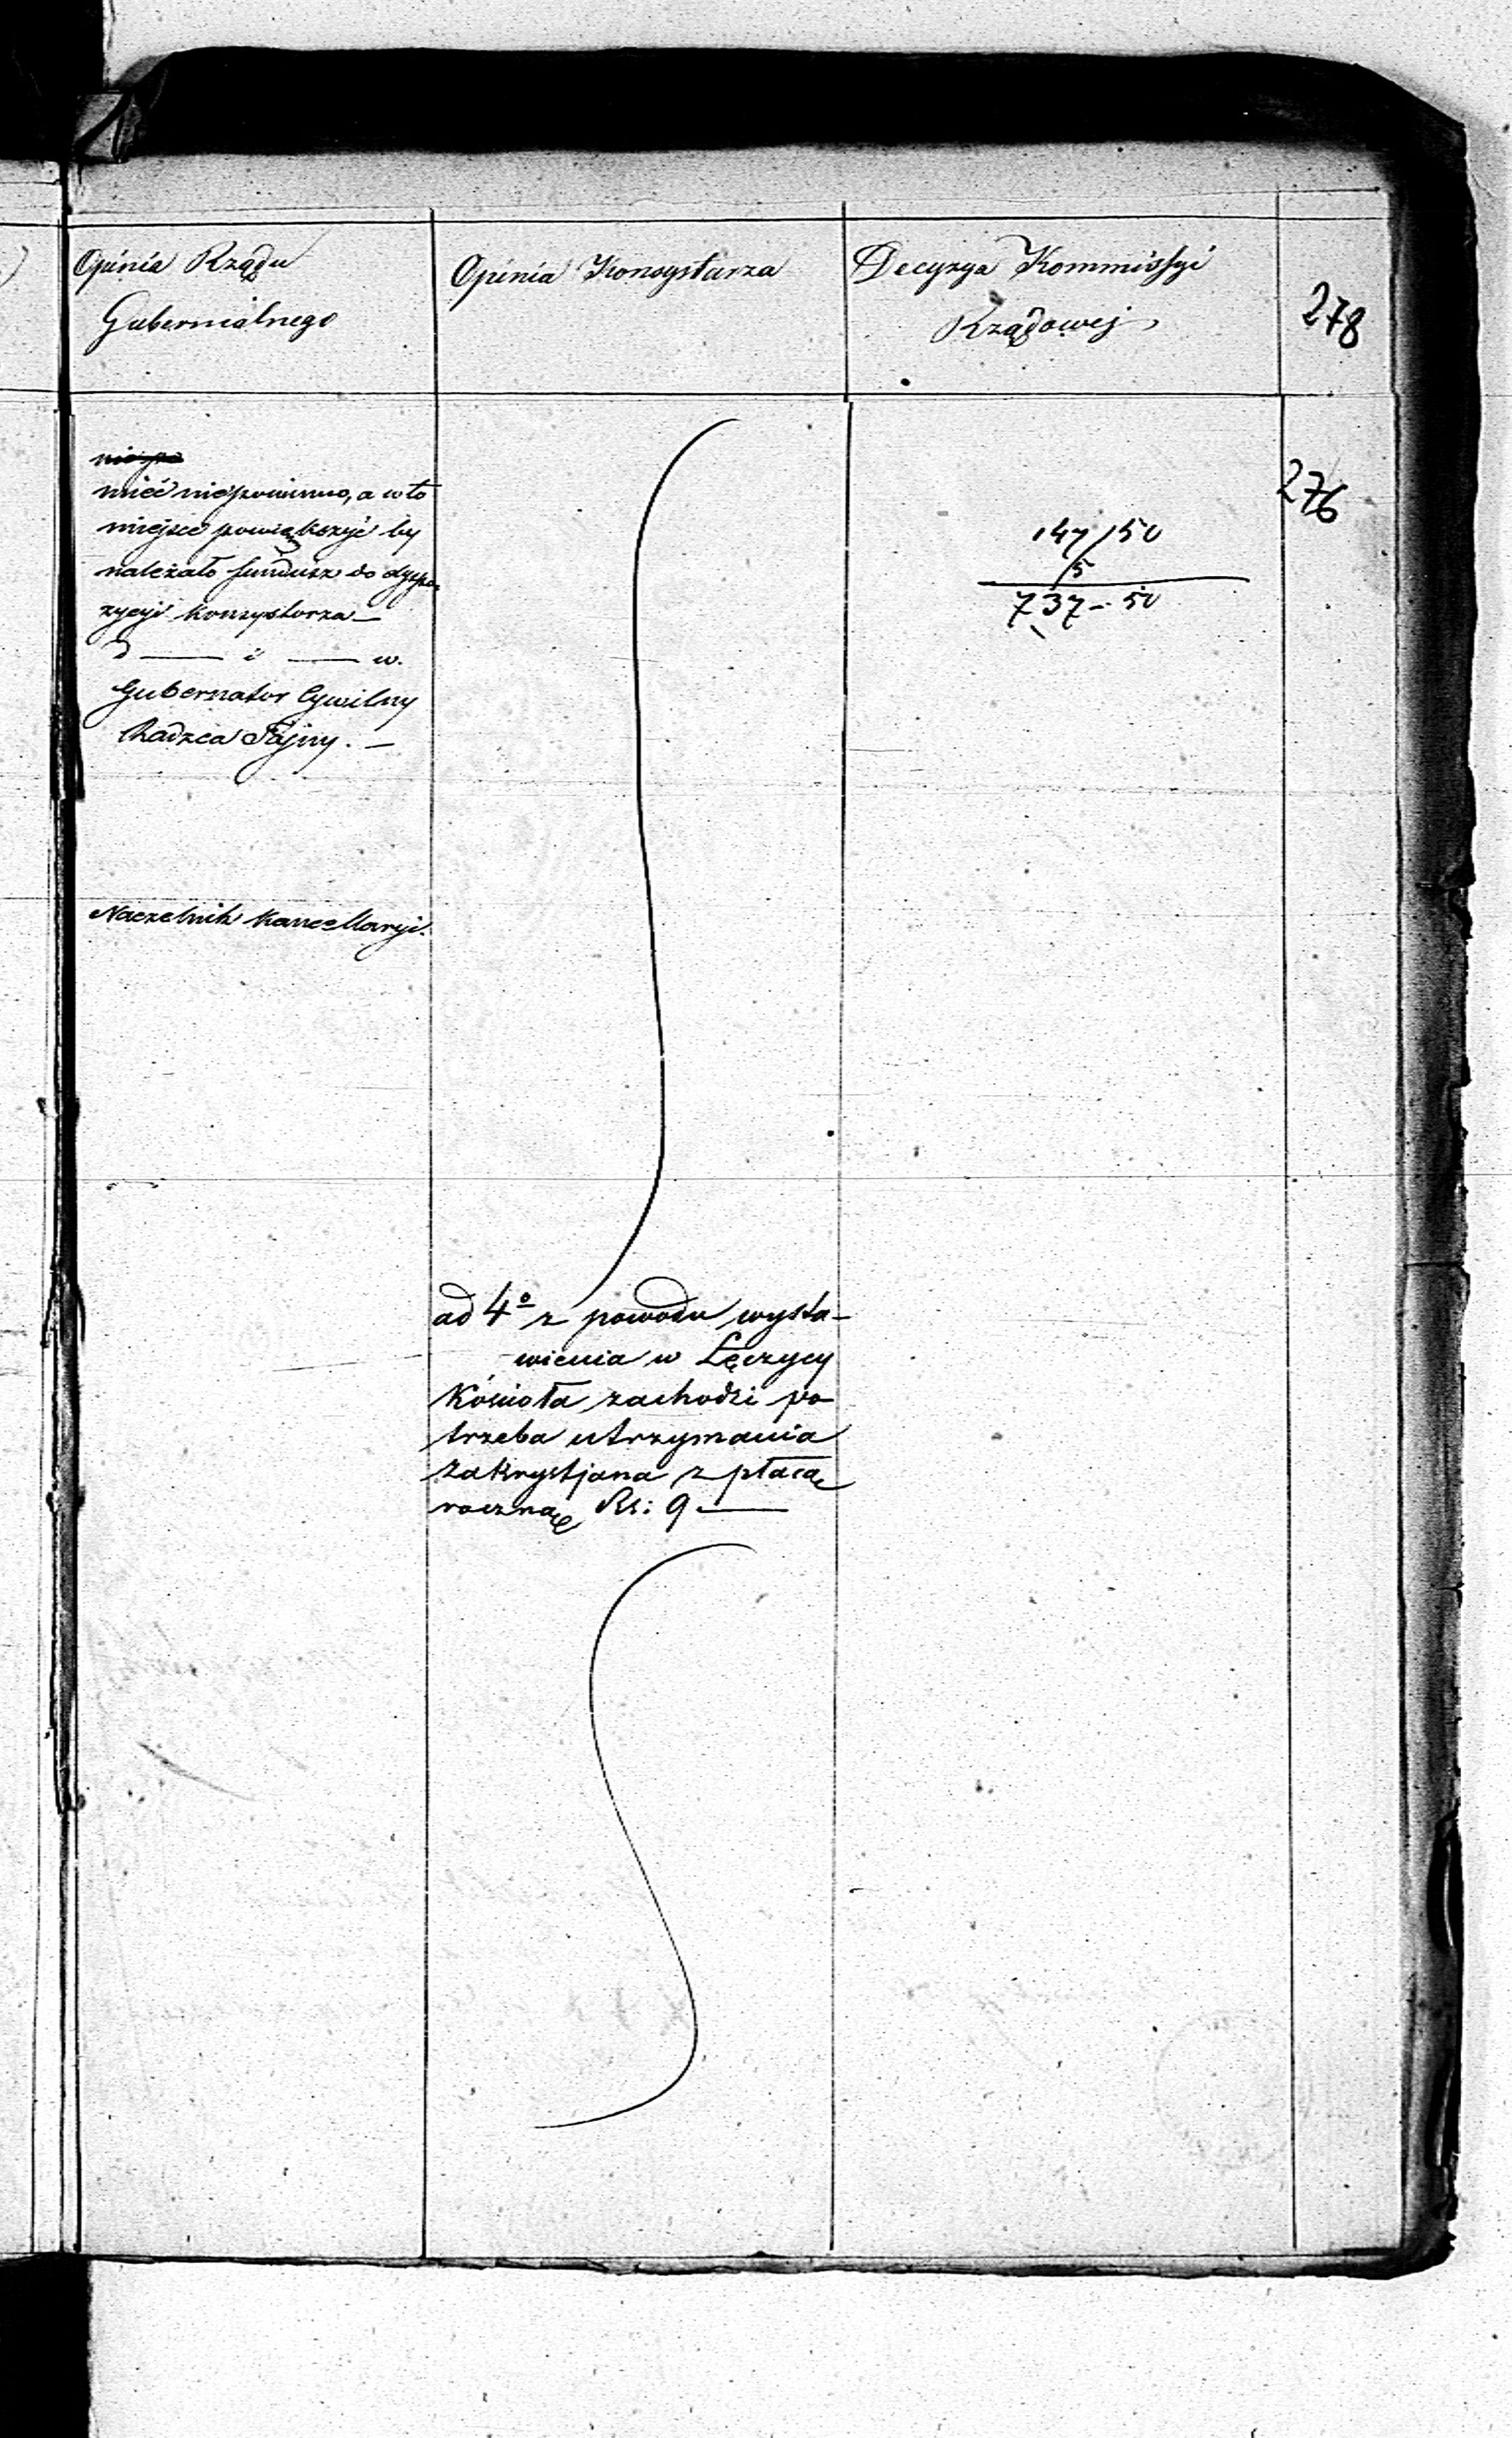 Opinia Rządu
Gubernialnego
Opinia Konsystarza
Decyzya Kommissyi
Rządowej
278
mieć niepowinno, a w to
miejsce powiększyć by
należało fundusz do dyspo-
zycyi Konsystorza —
d — i — w.
Gubernator Cywilny
Radzca Tajny. —
Naczelnik Kancellaryi.
ad 4º z powodu wysta-
wienia w Łęczycy
Kościoła zachodzi po
trzeba utrzymania
Zakrystjana z płacą
roczną Rs: 9 —
147/50
5
737 - 50
276